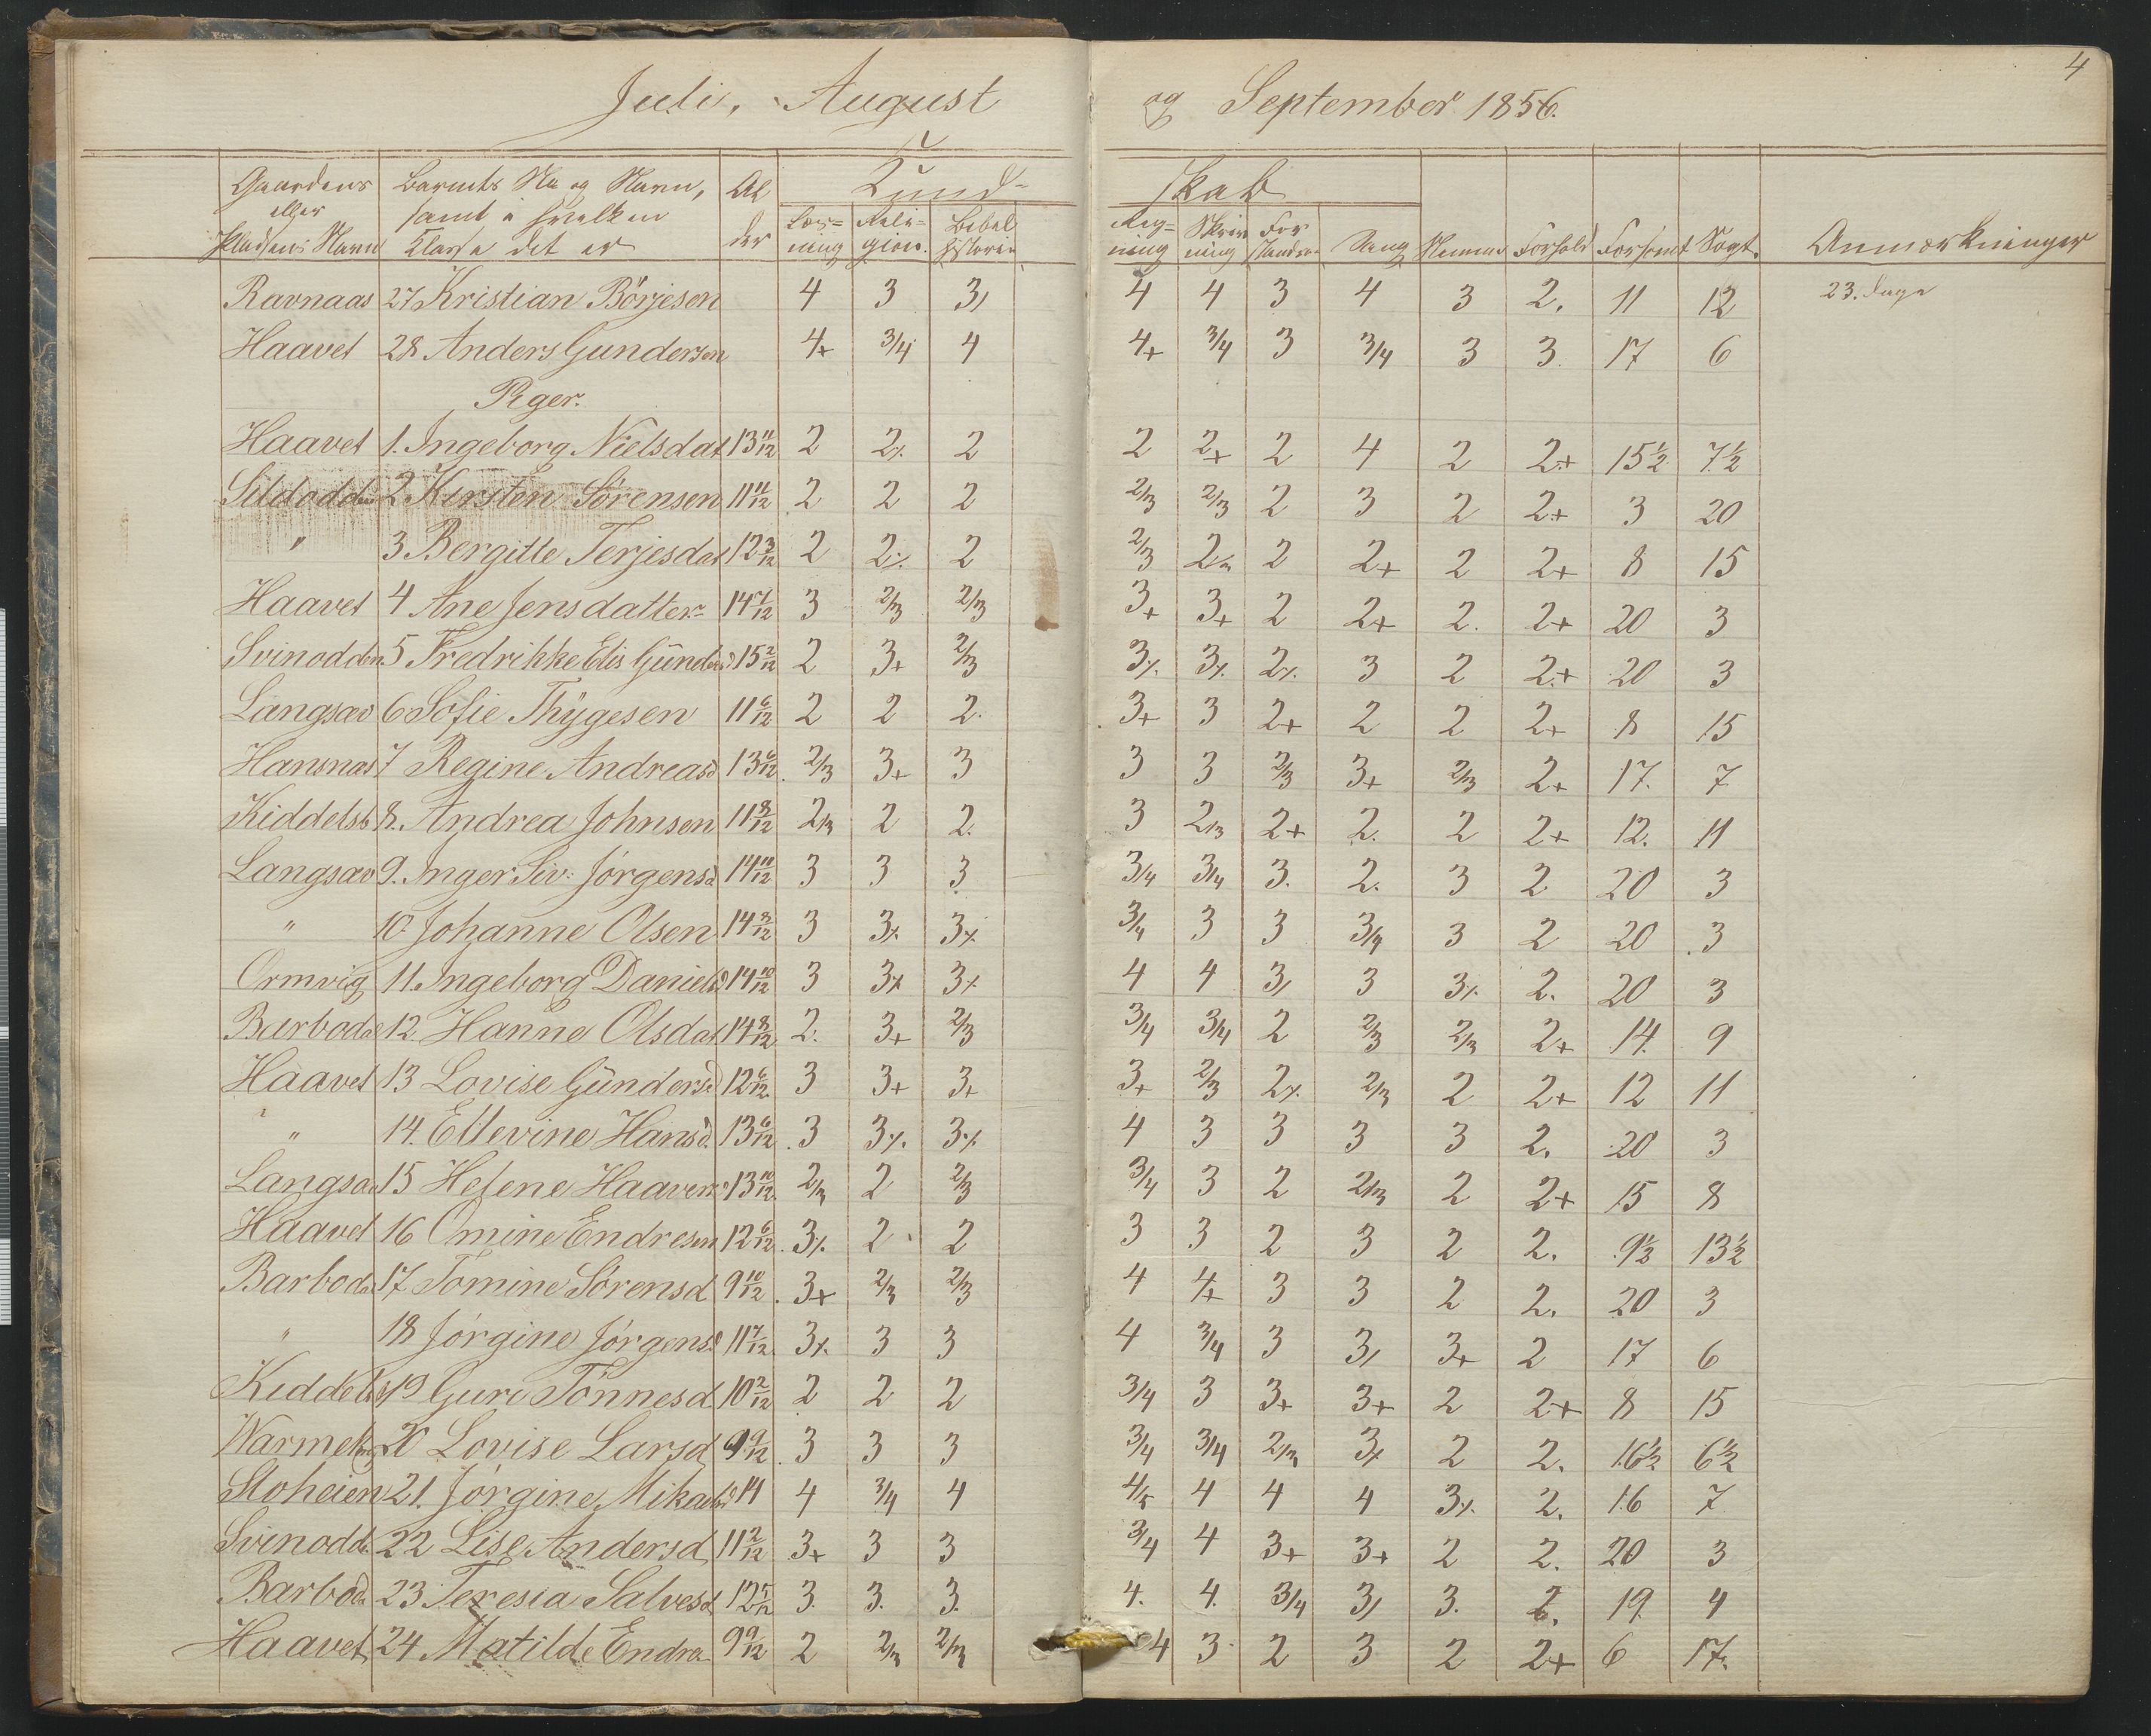 4
Juli, August og September 1856.
Gaardens eller Pladsens Navn Barnets No og Navn, samt i hvilken Klasse det er Alder Kundskab Anmærkninger
Læsning Religion. Bibelhistorie Regning Skrivning Forstandsø Sang Nemme Forhold Forsømt Søgt.
Ravnaas 27 Kristian Börjesen 4 3 3/ 4 4 3 4 3 2. 11 12 23. dage
Haavet 28 Anders Gundersen 4+ 3/4 4 4+ 3/4 3 3/4 3 3. 17 6
Piger.
Haavet 1. Ingeborg Nielsdat 13 11/12 2 2% 2 2 2+ 2 4 2 2+ 15½ 7½
Sildodden 2 Kirsten Sörensen 11 11/12 2 2 2 2/3 2/3 2 3 2 2+ 3 20
" 3 Bergitte Terjesdat 12 3/12 2 2% 2 2/3 2/3 2 2+ 2 2+ 8 15
Haavet 4 Ane Jensdatter 14 7/12 3 2/3 2/3 3+ 3+ 2 2+ 2. 2+ 20 3
Svinodden 5 Fredrikke Elis Günders 15 2/12 2 3+ 2/3 3% 3% 2% 3 2 2+ 20 3
Langsæv 6 Sofie Thÿgesen 11 6/12 2 2 2. 3+ 3 2+ 2 2 2+ 8 15
Hansnæs 7 Regine Andreasd 13 6/12 2/3 3+ 3 3 3 2/3 3+ 2/3 2+ 17. 7
Kiddelsb 8. Andrea Johnsen 11 8/12 2/3 2 2. 3 2/3 2+ 2. 2 2+ 12. 11
Langsæv 9. Inger Siv: Jörgensd 14 11/12 3 3 3 3/4 3/4 3. 2. 3 2 20 3
" 10 Johanne Olsen 14 3/12 3 3% 3% 3/4 3 3 3/4 3 2 20 3
Ormvig 11. Ingeborg Danielsd 14 10/12 3 3% 3% 4 4 3/ 3 3% 2. 20 3
Barbodal 12. Hanne Olsdat 14 8/12 2. 3+ 2/3 3/4 3/4 2 2/3 2/3 2+ 14. 9
Haavet 13 Lovise Gündersd 12 6/12 3 3+ 3+ 3+ 2/3 2% 2/3 2 2+ 12 11
" 14. Ellevine Hansd. 13 6/12 3 3% 3% 4 3 3 3 3 2. 20 3
Langsæv 15 Helene Haavers 13 10/12 2/3 2 2/3 3/4 3 2 2/3 2 2+ 15 8
Haavet 16 Omine Endresen 12 6/12 3% 2 2 3 3 2 3 2 2. 9½ 13½
Barbodal 17 Tomine Sörensd 9 10/12 3+ 2/3 2/3 4 4+ 3 3 2 2. 20 3
" 18 Jörgine Jörgensd 11 7/12 3% 3 3 4 3/4 3 3/ 3+ 2 17 6
Kiddelsb 19 Guro Tönnesd 10 2/12 2 2 2 3/4 3 3+ 3+ 2 2+ 8 15
20 Lovise Larsd 9 9/12 3 3 3 3/4 3/4 2/3 3% 2 2. 16½ 6½
Stoheien 21. Jörgine Mikaelsd 14 4 3/4 4 4/5 4 4 4 3% 2. 16 7
Svinodd 22 Lise Andersd 11 2/12 3+ 3 3 3/4 4 3+ 3+ 2 2. 20 3
Barbod 23 Teresia Salvesd 12 5/12 3. 3. 3. 4. 4. 3/4 3/ 3. 2. 19. 4
Haavet 24 Matilde Endre 9 9/12 2 2/3 2/3 4 3 2 3 2 2+ 6 17.